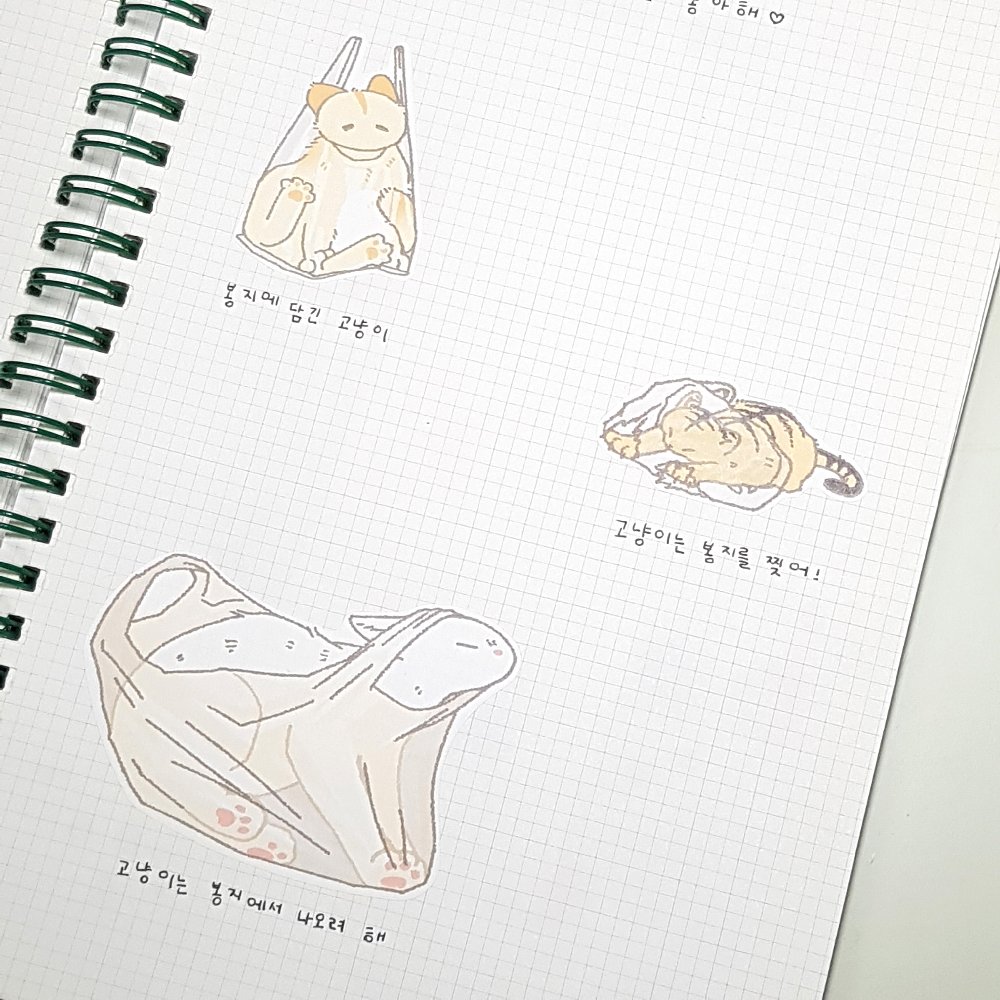 봉지에 담긴 고냥이
고냥이는 봉지를 찢어!
고냥이는 봉지에서 나오려 해